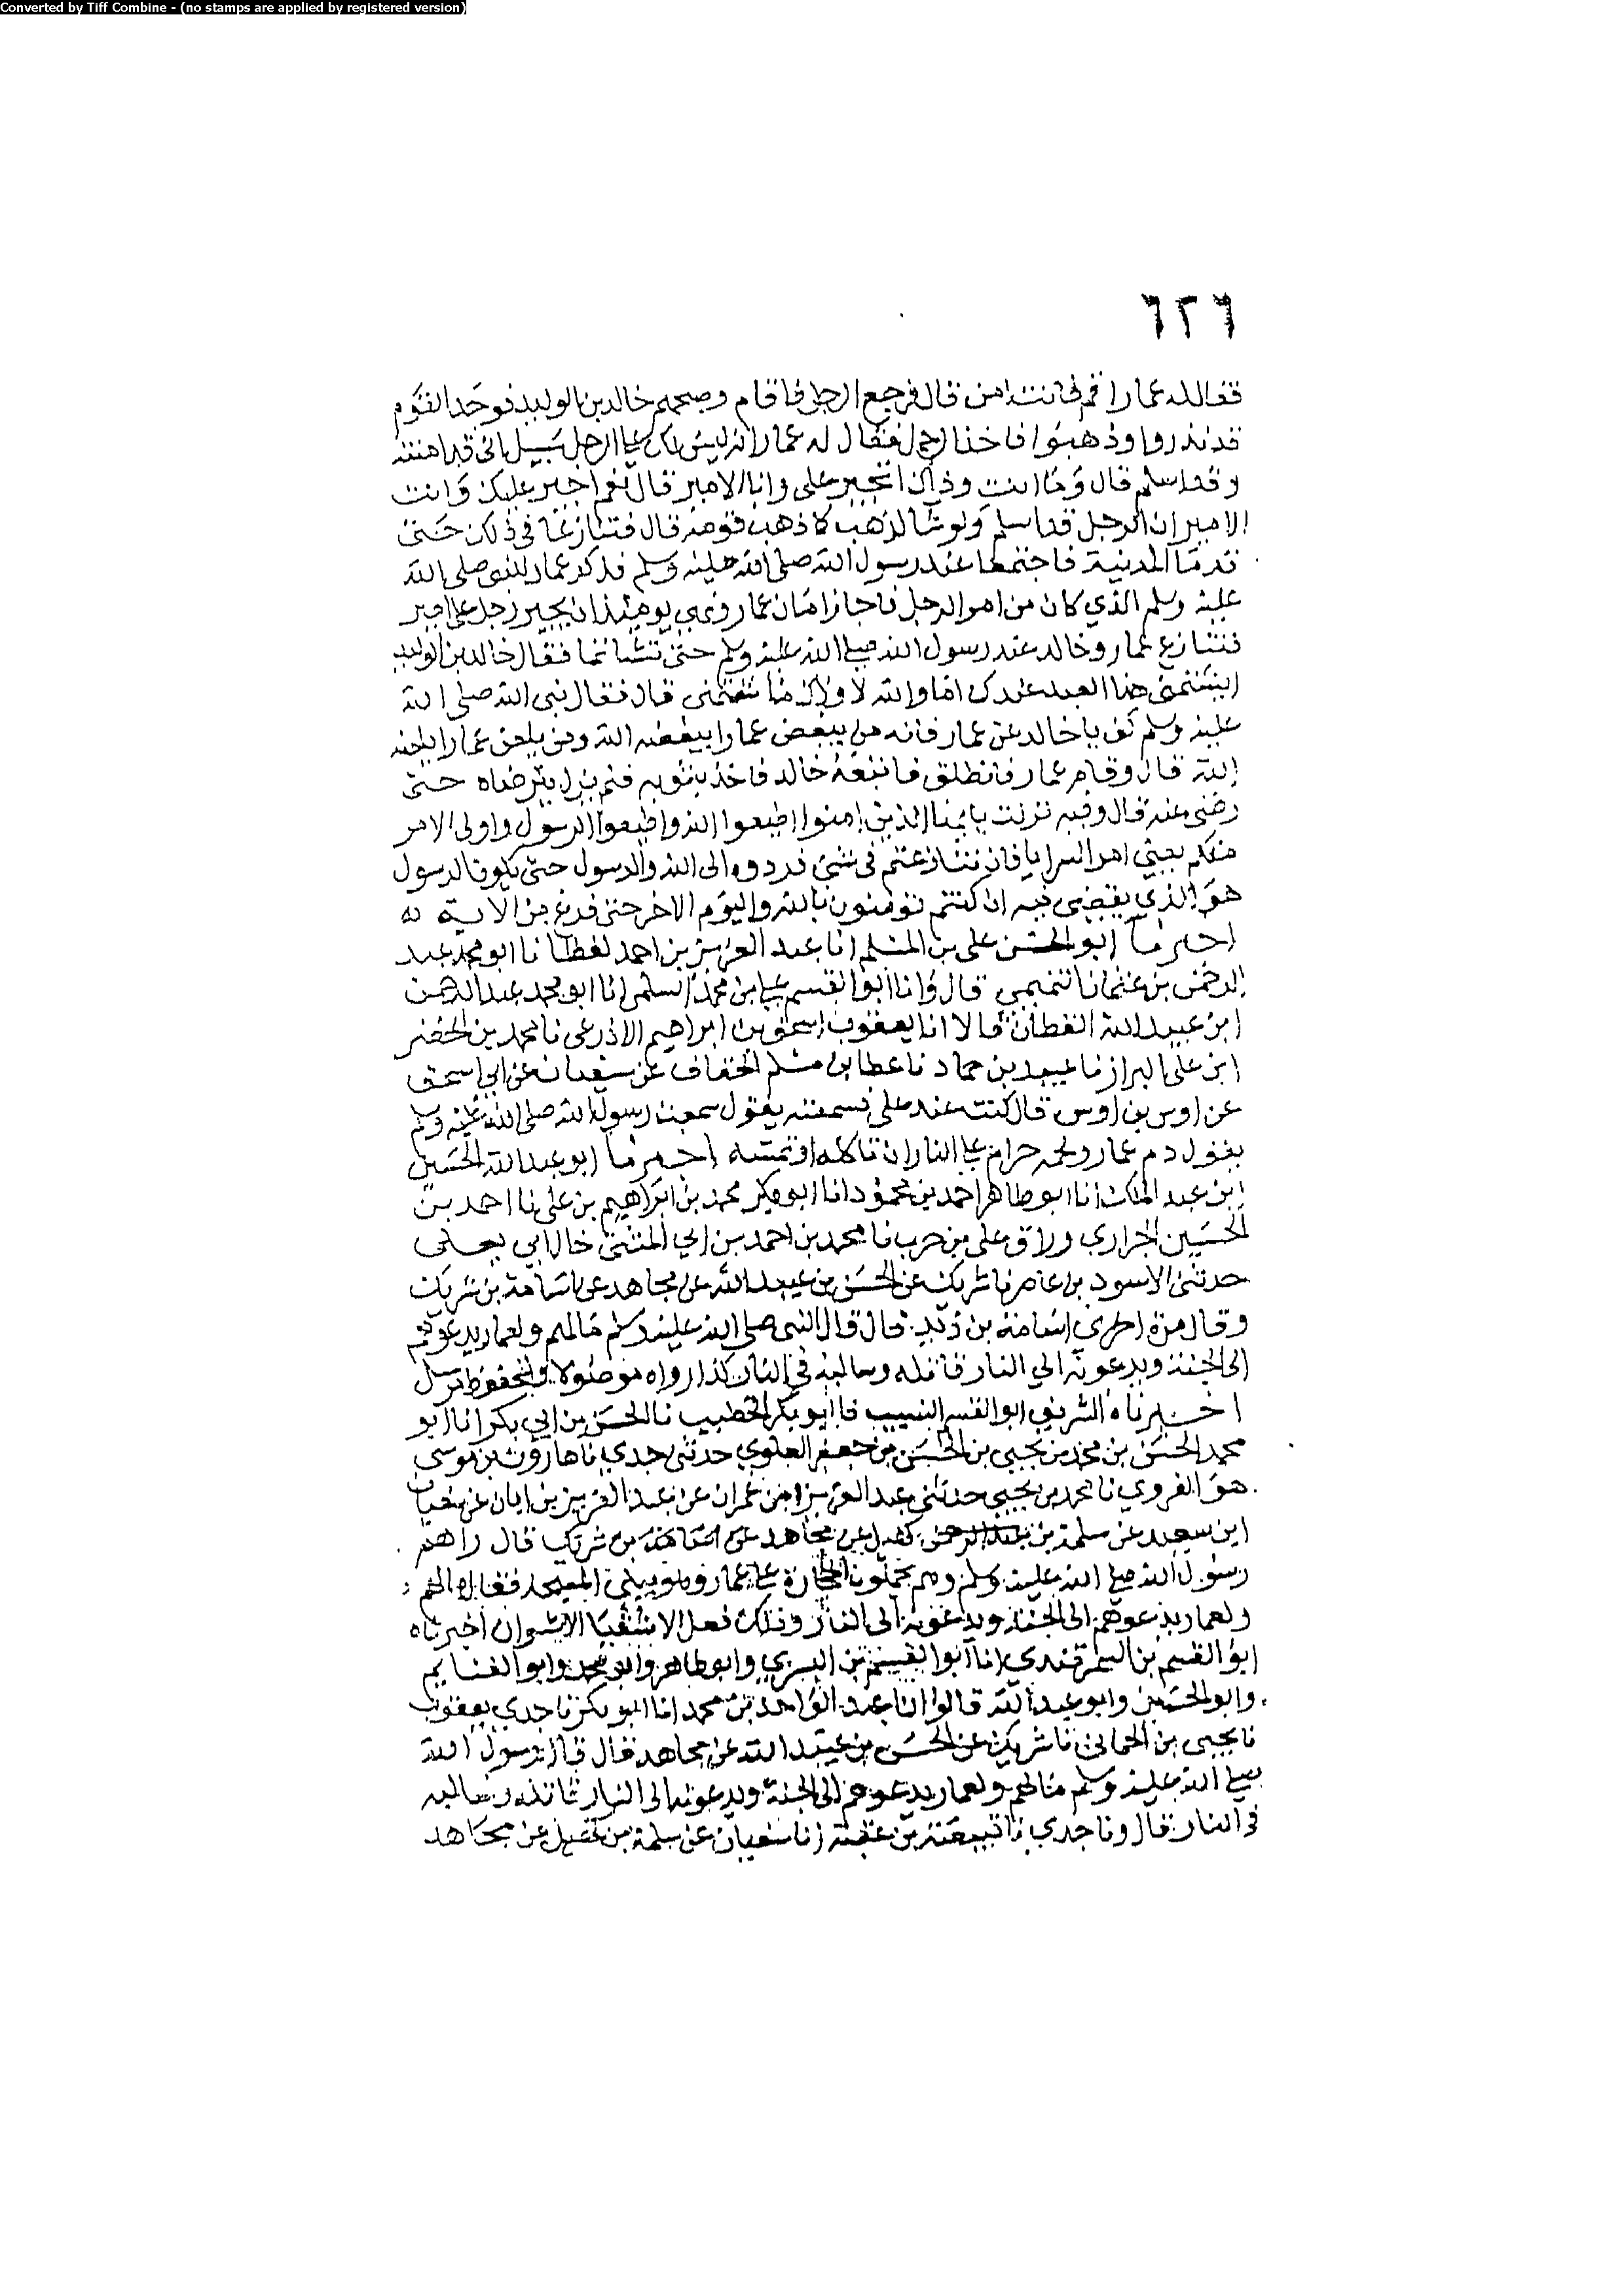 Converted by Tiff Combine - (no stamps are applied by registered version)
٦٢٦
فقال له عمار اقم فانت امن قال فرجع الرجل فاقام وصبحهم خالد بن الوليد فوجد القوم
قد نذروا وذهبوا فاخذ الرجل فقال له عمار انه ليس لك على الرجل سبيل اني قد امنته
وقد اسلم قال وما انت وذاك اتجير على وانا الامير قال نعم اجير عليك وانت
الامير ان الرجل قد اسلم ولو شا لذهب كا ذهب قومه قال فتنازعا في ذلك حتى
قدما المدينة فاجتمعا عند رسول الله صلى الله عليه وسلم فذكر عمار للنبي صلى الله
عليه وسلم الذي كان من امر الرجل فاجاز امان عمار ونهى يومئذ ان يجير رجل على امير
فتنازع عمار وخالد عند رسول الله صلى الله عليه وسلم حتى تشاتما فقال خالد بن الوليد
ايشتمني هذا العبد عندك اما والله لا ولاك ما شتمني قال فقال نبي الله صلى الله
عليه وسلم كف يا خالد عن عمار فانه من يبغض عمارا يبغضه الله ومن يلعن عمارا يلعنه
الله قال وقام عمار فانطلق فاتبعه خالد فاخذ بثوبه فلم يزل يترضاه حتى
رضي عنه قال وفيه نزلت يا يها الذين امنوا اطيعوا الله واطيعوا الرسول واولى الامر
منكم يعني امرا السرايا فان تنازعتم في شئ فردوه الى الله والرسول حتى يكون الرسول
هو الذي يقضي فيه ان كنتم تؤمنون بالله واليوم الاخر حتى فرغ من الاية
اخبرنا ابو الحسن علي بن المسلم انا عبد العزيز بن احمد لفظا نا ابو محمد عبد
الرحمن بن عثمان التميمي قال وانا ابو القسم علي بن محمد السلمي انا ابو محمد عبد الرحمن
ابن عبيد الله القطان قالا انا يعقوب اسحق بن ابراهيم الاذرعي نا محمد بن الخضر
ابن علي البزاز نا عبيد بن حماد نا عطا بن مسلم الخفاف عن سفيان عن ابي اسحق
عن اوس بن اوس قال كنت عند علي فسمعته يقول سمعت رسول الله صلى الله عليه وسلم
يقول دم عمار ولحمه حرام على النار ان تاكله او تمسه اخبرنا ابو عبد الله الحسين
ابن عبد الملك انا ابو طاهر احمد بن محمود انا ابو بكر محمد بن ابراهيم بن علي نا احمد بن
الحسين الجراري وراق علي بن حرب نا محمد بن احمد بن ابي المثنى خال ابي يعلى
حدثني الاسود بن عامر نا شريك عن الحسن بن عبيد الله عن مجاهد عن اسامة بن شريك
وقال مرة اخرى اسامة بن زيد قال قال النبي صلى الله عليه وسلم ما لهم ولعمار يدعوهم
الى الجنة ويدعونه الي النار قاتله وسالبه في النار كذا رواه موصولا والمحفوظ مرسل
اخبرناه الشريف ابو القسم النسيب نا ابو بكر الخطيب نا الحسن بن ابي بكر انا ابو
محمد الحسن بن محمد بن يحيى بن الحسن بن جعفر العلوي حدثني جدي نا هارون بن موسى
هو الفروي نا محمد بن يحيى حدثني عبد العزيز بن عمران عن عبد العزيز بن ابان عن سفيان
ابن سعيد عن سلمة بن كهيل عن مجاهد عن اسامة بن شريك قال راهم
رسول الله صلى الله عليه وسلم وهم يحملون الحجارة على عمار وهو يبني المسجد فقال ما لهم
ولعمار يدعوهم الى الجنة ويدعونه الى النار وذلك فعل الاشقيا الاشرار اخبرناه
ابو القسم بن السمرقندي انا ابو القسم بن البسري وابو طاهر وابو محمد وابو الغنايم
وابو الحسين وابو عبد الله قالوا انا عبد الواحد بن محمد انا ابو بكر نا جدي يعقوب
نا يحيى بن الحماني نا شريك عن الحسن بن عبيد الله عن مجاهد قال قال رسول الله
صلى الله عليه وسلم ما لهم ولعمار يدعوهم الى الجنة ويدعونه الى النار قاتله وسالبه
في النار قال ونا جدي نا قبيصة بن عقبة نا سفيان عن سلمة بن كهيل عن مجاهد